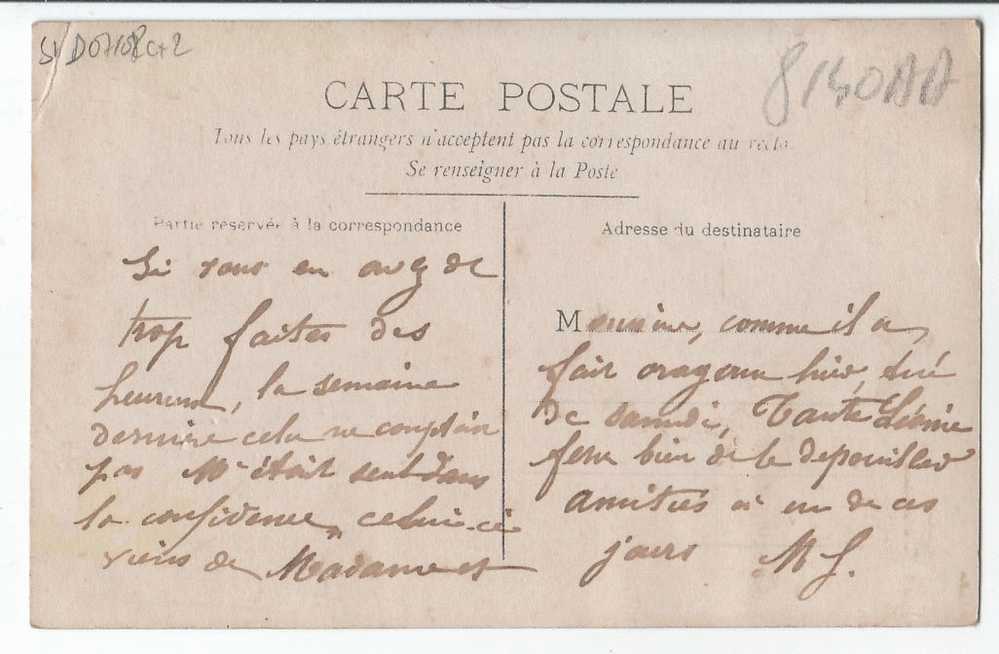 CARTE POSTALE
Tous les pays étrangers n'acceptent pas la correspondance au recto.
Se renseigner à la Poste
Partie reservée à la correspondance
Si vous en avez de
trop faites des
heureux, la semaine
dernière cela ne comptait
pas Mr était seul dans
la confidence, celui-ci
viens de Madame et
Adresse du destinataire
Monsieur, comme il a
fait orageux hier,
de samedi, Tante Léonie
fera bien de le dépouiller
amitiés à un de ces
jours M
8140AA